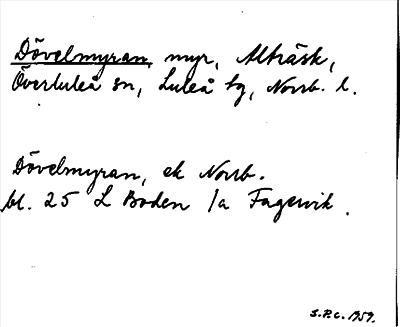 Dövelmyran, myr, Alträsk,
Överluleå sn, Luleå tg, Norrb. l.
Dövelmyran, ek Norrb.
bl. 25 L Boden /a Fagervik.
S.P.C. 1959.